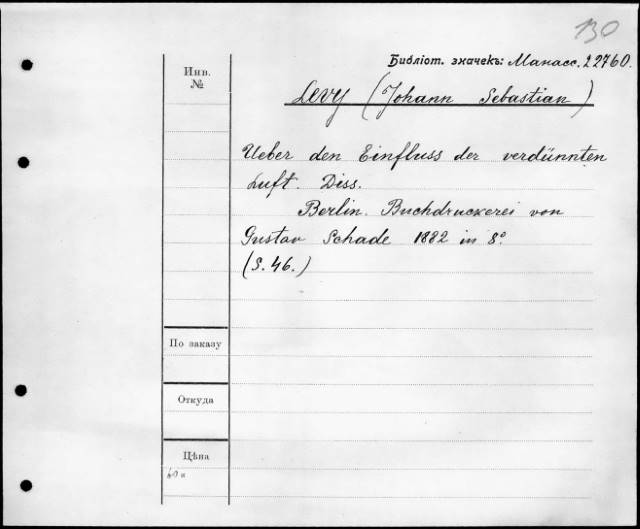 130
Библіот. значекъ: Манасс. 22760.
Инв.
№
Levy (Johann Sebastian)
Ueber den Einfluss der verdünnten
Luft. Diss.
Berlin. Buchdruckerei von
Gustav Schade 1882 in 8º
(S. 46.)
По заказу
Откуда
Цѣна
60 к